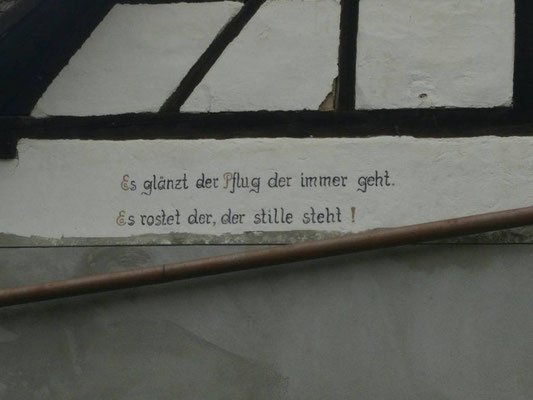 Es glänzt der Pflug der immer geht.
Es rostet der, der stille steht !